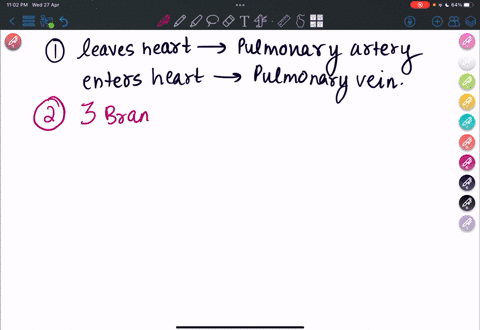 11:02 PM Wed 27 Apr
64%
① leaves heart → Pulmonary artery
enters heart → Pulmonary vein.
② 3 Bran